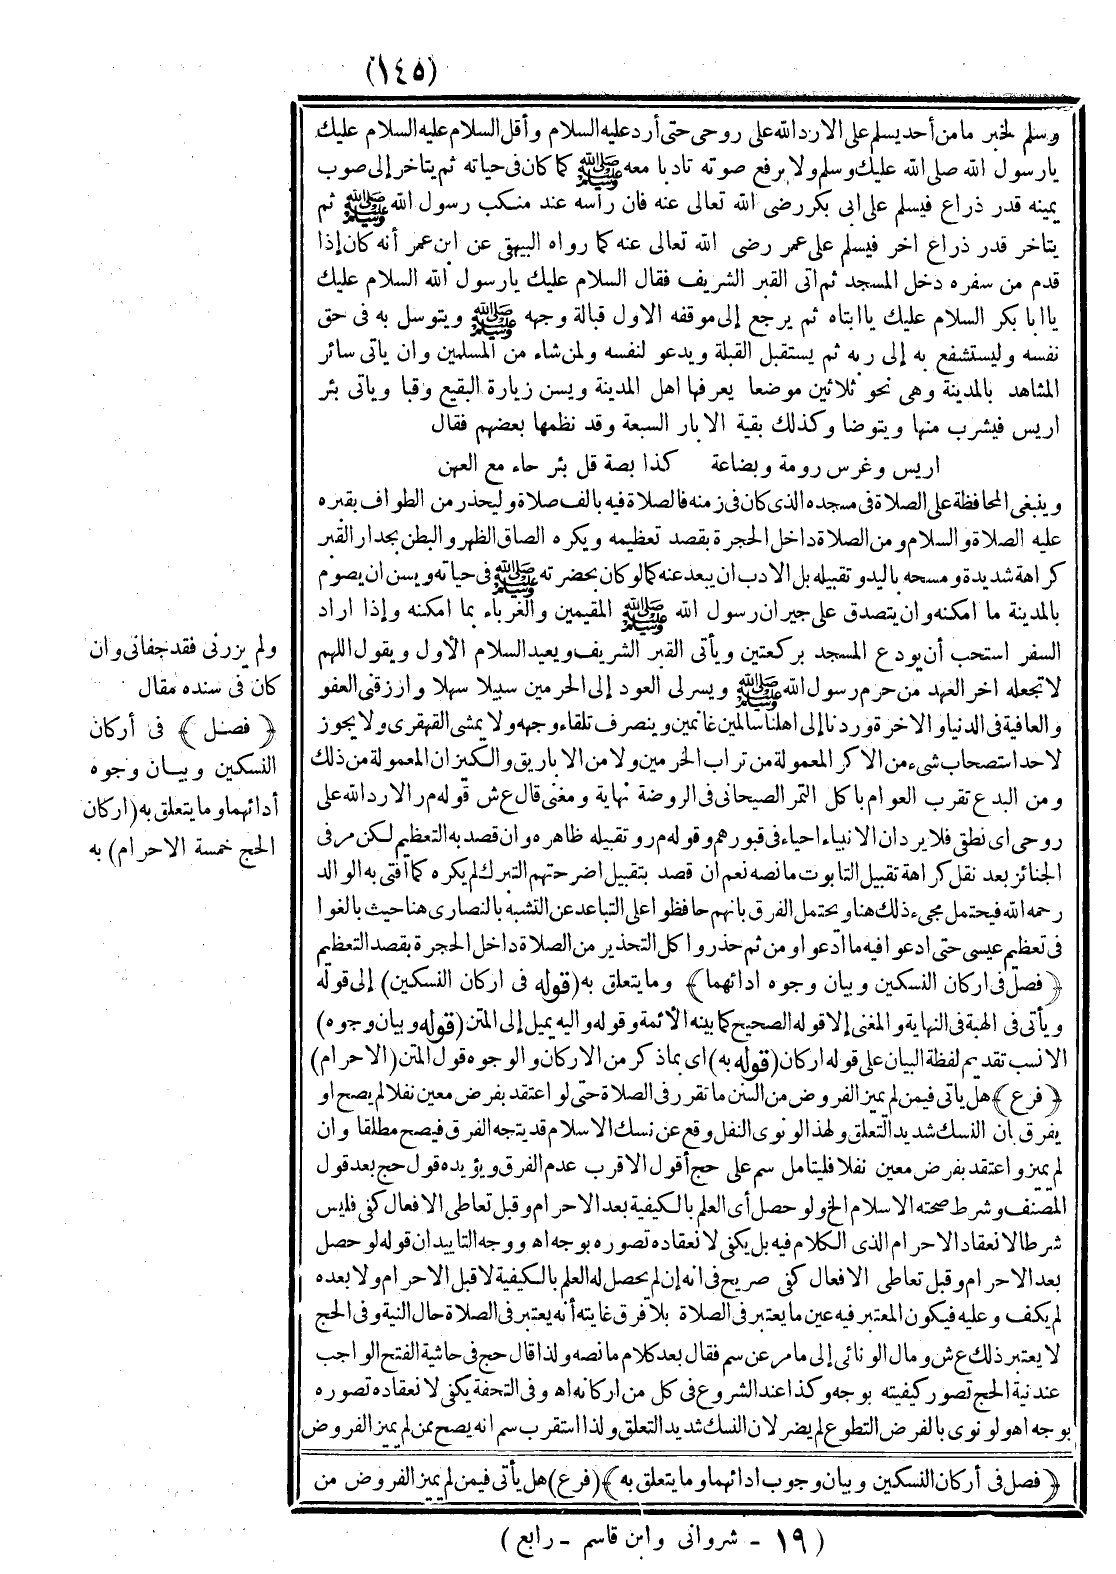 (١٤٥)
وسلم لخبر ما من أحد يسلم على الا رد الله على روحى حتى أرد عليه السلام وأقل السلام عليه السلام عليك
يارسول الله صلى الله عليك وسلم ولا يرفع صوته تادبا معه ﷺ كما كان فى حياته ثم يتاخر إلى صوب
يمينه قدر ذراع فيسلم على ابى بكر رضى الله تعالى عنه فان رأسه عند منكب رسول الله ﷺ ثم
يتاخر قدر ذراع اخر فيسلم على عمر رضى الله تعالى عنه كما رواه البيهقى عن ابن عمر أنه كان إذا
قدم من سفره دخل المسجد ثم اتى القبر الشريف فقال السلام عليك يارسول الله السلام عليك
ياابا بكر السلام عليك ياابتاه ثم يرجع إلى موقفه الاول قبالة وجهه ﷺ ويتوسل به فى حق
نفسه وليستشفع به إلى ربه ثم يستقبل القبلة ويدعو لنفسه ولمن شاء من المسلمين وان ياتى سائر
المشاهد بالمدينة وهى نحو ثلاثين موضعا يعرفها اهل المدينة ويسن زيارة البقيع وقبا وياتى بئر
اريس فيشرب منها ويتوضا وكذلك بقية الابار السبعة وقد نظمها بعضهم فقال
اريس وغرس رومة وبضاعة كذا بصة قل بئر حاء مع العهن
وينبغى المحافظة على الصلاة فى مسجده الذى كان فى زمنه فالصلاة فيه بالف صلاة وليحذر من الطواف بقبره
عليه الصلاة والسلام ومن الصلاة داخل الحجرة بقصد تعظيمه ويكره الصاق الظهر والبطن بجدار القبر
كراهة شديدة ومسحه باليد وتقبيله بل الادب ان يبعد عنه كما لو كان بحضرته ﷺ فى حياته ويسن ان يصوم
بالمدينة ما امكنه وان يتصدق على جيران رسول الله ﷺ المقيمين والغرباء بما امكنه وإذا اراد
السفر استحب أن يودع المسجد بركعتين ويأتى القبر الشريف ويعيد السلام الأول ويقول اللهم
لا تجعله اخر العهد من حرم رسول الله ﷺ ويسر لى العود إلى الحرمين سبيلا سهلا وارزقنى العفو
والعافية فى الدنيا والاخرة وردنا إلى اهلنا سالمين غانمين وينصرف تلقاء وجهه ولا يمشى القهقرى ولا يجوز
لاحد استصحاب شىء من الاكر المعمولة من تراب الحرمين ولا من الاباريق والكيزان المعمولة من ذلك
ومن البدع تقرب العوام باكل التمر الصيحانى فى الروضة نهاية ومغنى قال ع ش قوله م ر الا رد الله على
روحى اى نطقى فلا يرد ان الانبياء احياء فى قبورهم وقوله م ر وتقبيله ظاهره وان قصد به التعظيم لكن مر فى
الجنائز بعد نقل كراهة تقبيل التابوت ما نصه نعم ان قصد بتقبيل اضرحتهم التبرك لم يكره كما أفتى به الوالد
رحمه الله فيحتمل مجىء ذلك هنا ويحتمل الفرق بانهم حافظوا على التباعد عن التشبه بالنصارى هنا حيث بالغوا
فى تعظيم عيسى حتى ادعوا فيه ما ادعوا ومن ثم حذروا كل التحذير من الصلاة داخل الحجرة بقصد التعظيم
﴿ فصل فى اركان النسكين وبيان وجوه ادائهما ﴾ وما يتعلق به (قوله فى اركان النسكين) إلى قوله
ويأتى فى الهبة فى النهاية والمغنى إلا قوله الصحيح كما بينه الأئمة وقوله واليه يميل إلى المتن (قوله وبيان وجوه)
الانسب تقديم لفظة البيان على قوله اركان (قوله به) اى بماذكر من الاركان والوجوه قول المتن (الاحرام)
﴿ فرع ﴾ هل يأتى فيمن لم يميز الفروض من السنن ما تقرر فى الصلاة حتى لو اعتقد بفرض معين نفلا لم يصح او
يفرق بان النسك شديد التعلق ولهذا لو نوى النفل وقع عن نسك الاسلام قد يتجه الفرق فيصح مطلقا وان
لم يميز واعتقد بفرض معين نفلا فليتامل سم على حج أقول الاقرب عدم الفرق ويؤيده قول حج بعد قول
المصنف وشرط صحته الاسلام الخ ولو حصل أى العلم بالكيفية بعد الاحرام وقبل تعاطى الافعال كفى فليس
شرطا لانعقاد الاحرام الذى الكلام فيه بل يكفى لانعقاده تصوره بوجه اه ووجه التاييد ان قوله لو حصل
بعد الاحرام وقبل تعاطى الافعال كفى صريح فى انه إن لم يحصل له العلم بالكيفية لا قبل الاحرام ولا بعده
لم يكف وعليه فيكون المعتبر فيه عين ما يعتبر فى الصلاة بلا فرق غايته أنه يعتبر فى الصلاة حال النية وفى الحج
لا يعتبر ذلك ع ش ومال الونائى إلى ما مر عن سم فقال بعد كلام ما نصه ولذا قال حج فى حاشية الفتح الواجب
عند نية الحج تصور كيفيته بوجه وكذا عند الشروع فى كل من اركانه اه وفى التحفة يكفى لانعقاده تصوره
بوجه اه ولو نوى بالفرض التطوع لم يضر لان النسك شديد التعلق ولذا استقرب سم انه يصح ممن لم يميز الفروض
﴿ فصل فى أركان النسكين وبيان وجوب ادائهما وما يتعلق به ﴾ (فرع) هل يأتى فيمن لم يميز الفروض من
ولم يزرنى فقد جفانى وان
كان فى سنده مقال
﴿ فصل ﴾ فى أركان
النسكين وبيان وجوه
أدائهما وما يتعلق به (اركان
الحج خمسة الاحرام) به
(١٩ - شروانى وابن قاسم - رابع)